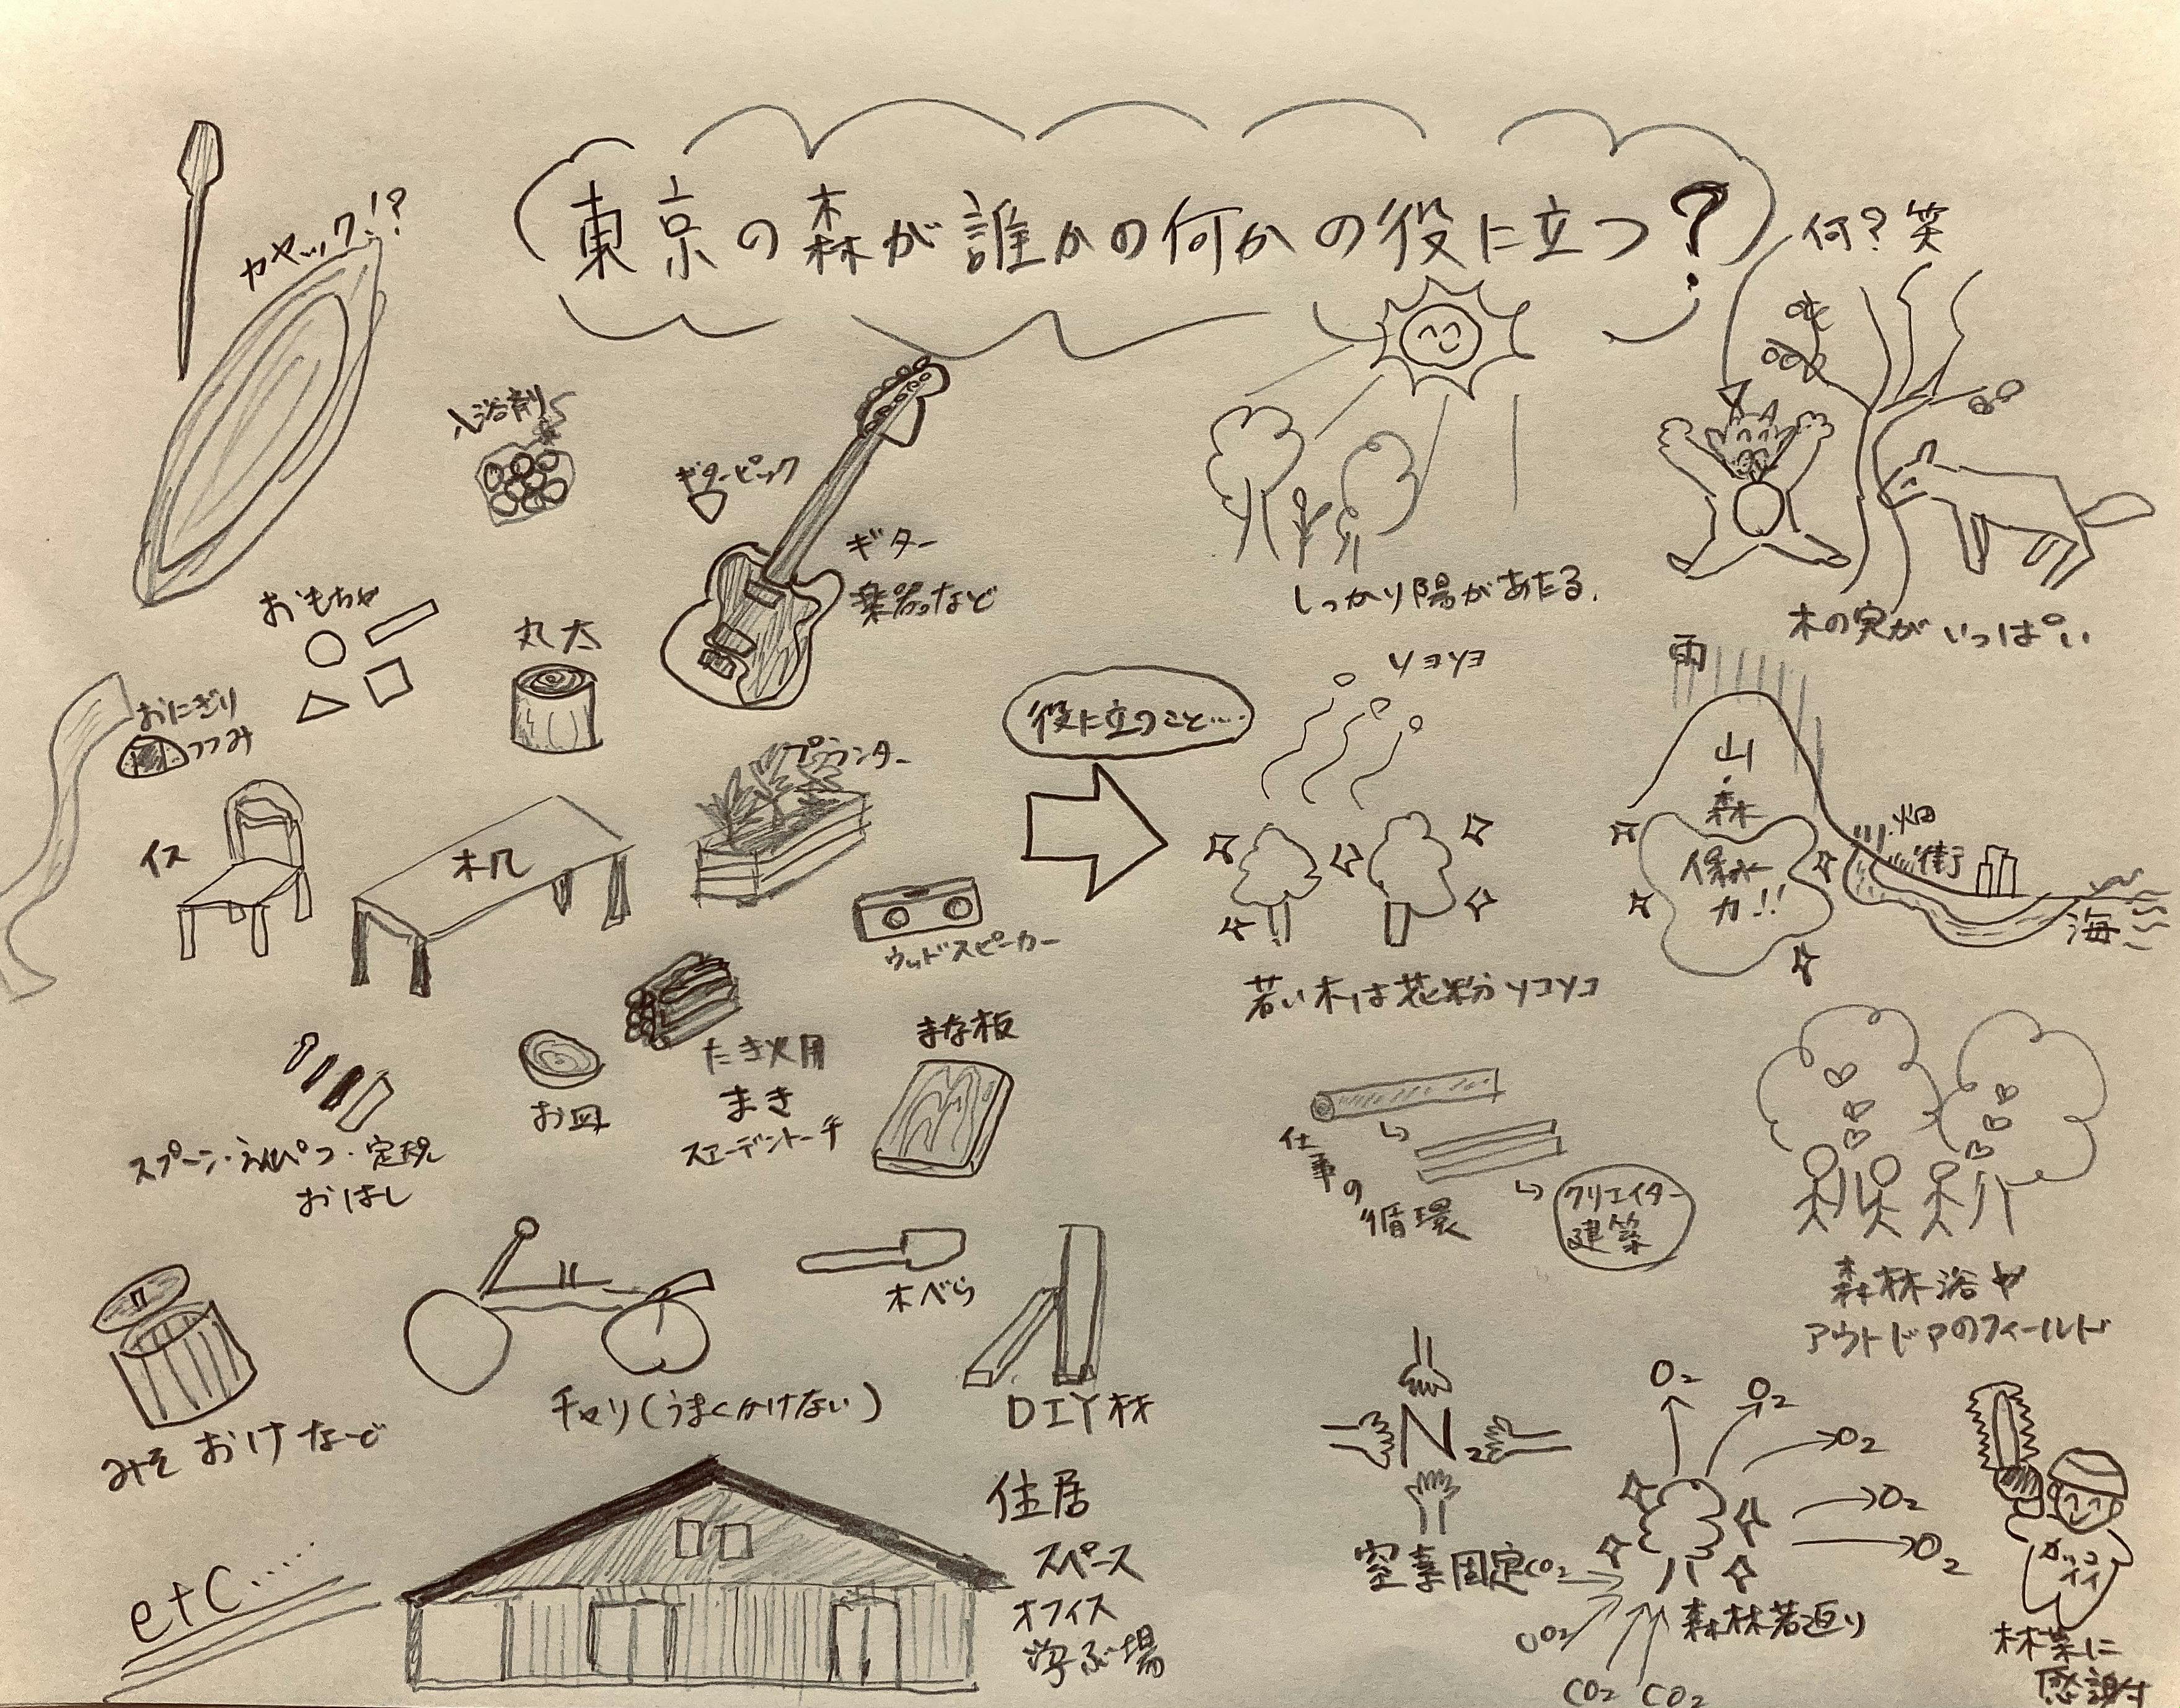 東京の森が誰かの何かの役に立つ?
何?笑
カヤック!?
入浴剤
ギターピック
ギター
楽器など
おもちゃ
丸太
おにぎり
つつみ
プランター
イス
木机
ウッドスピーカー
たき火用
まき
スエーデントーチ
まな板
お皿
スプーン・えんぴつ・定規
おはし
木べら
みそ おけ など
チャリ(うまくかけない)
DIY材
住居
スペース
オフィス
学ぶ場
etc....
役に立つこと....
しっかり陽があたる.
木の実がいっぱい
ソヨソヨ
若い木は花粉ソコソコ
雨
山・森
保水
力!!
畑
街
海
仕事の循環
クリエイター
建築
森林浴や
アウトドアのフィールド
N2
窒素固定
O2
O2
O2
O2
O2
CO2
CO2
CO2
CO2
森林若返り
カッコ
イイ
林業に
感謝